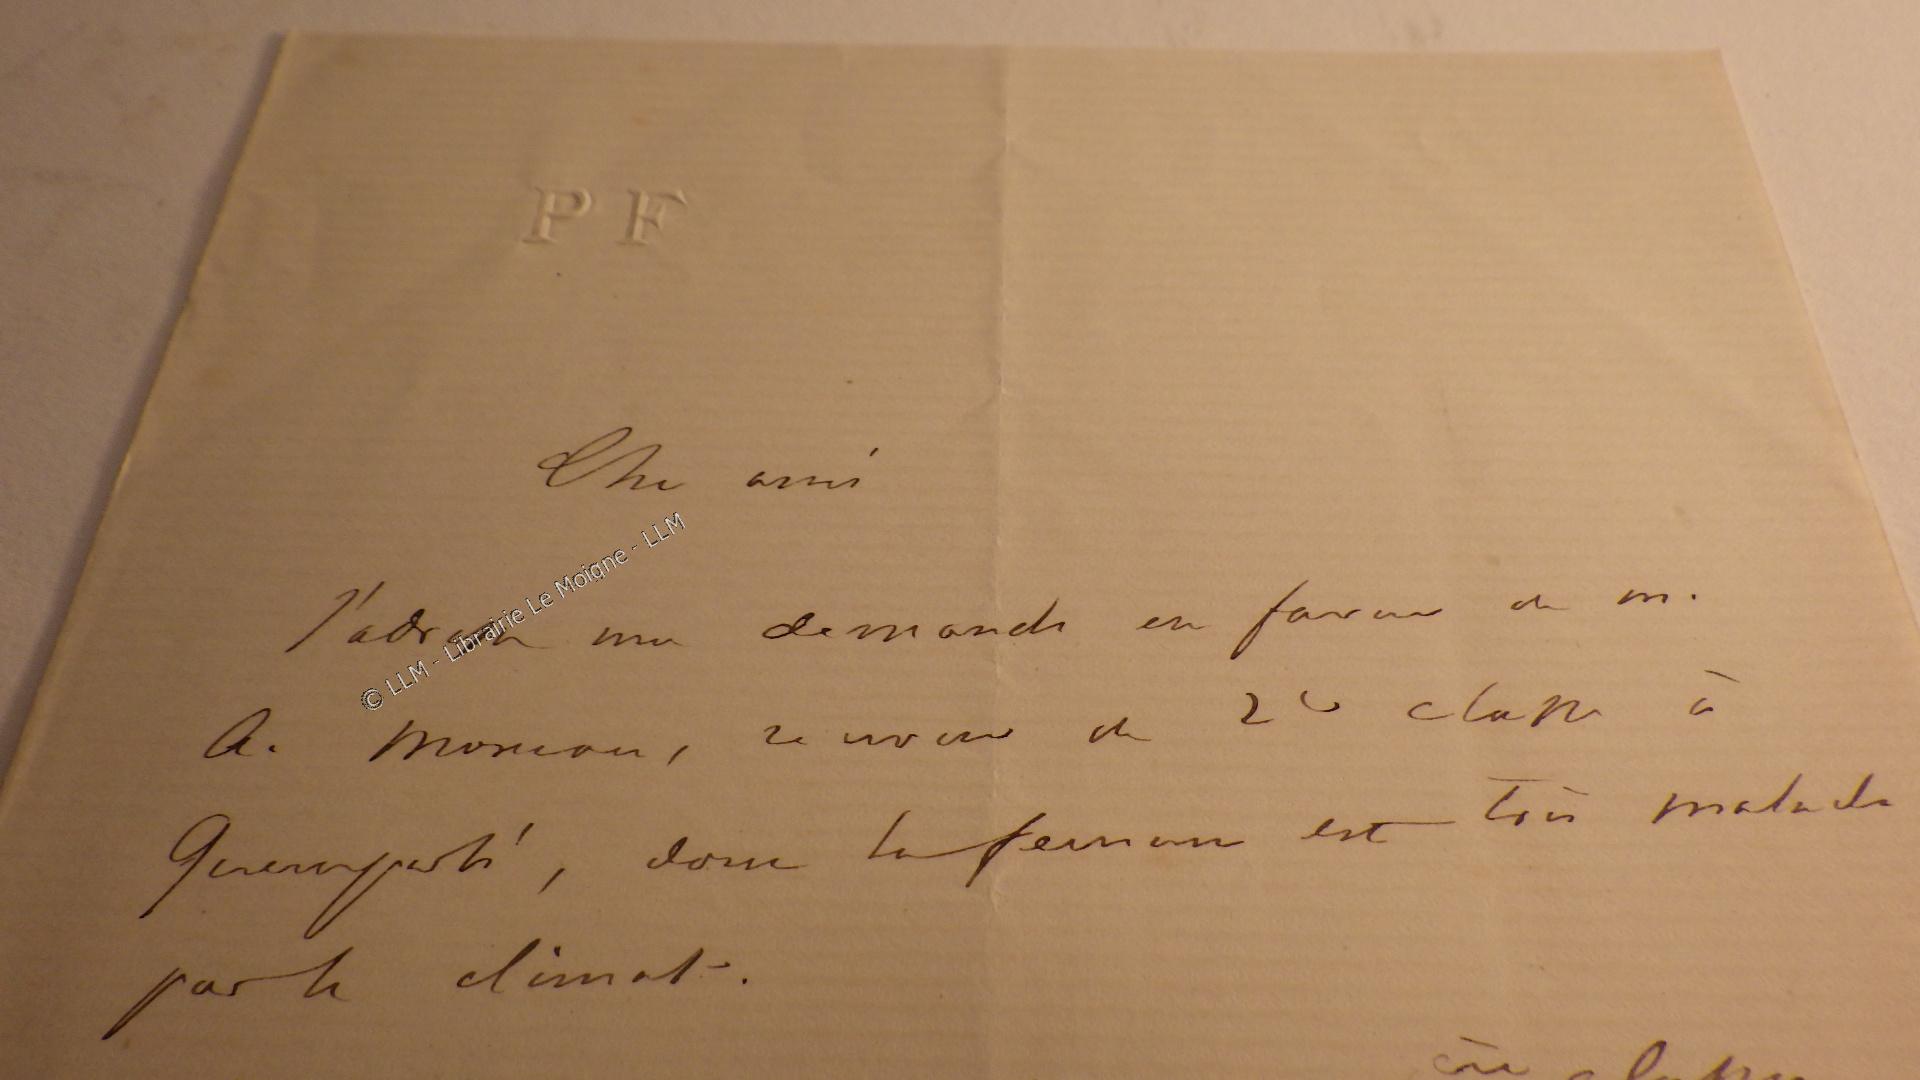 P F
Cher ami
J'adresse une demande en faveur de M.
A. Moreau, receveur de 2e classe à
dont la femme est très malade
par le climat.
classe
© LLM - Librairie Le Moigne - LLM